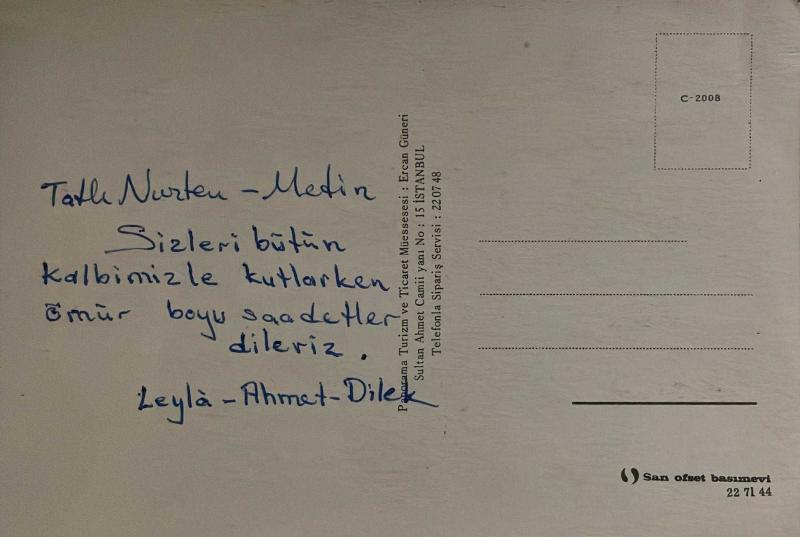 Tatlı Nurten - Metin
Sizleri bütün
kalbimizle kutlarken
ömür boyu saadetler
dileriz.
Leylâ - Ahmet - Dilek
Panorama Turizm ve Ticaret Müessesesi : Ercan Güneri
Sultan Ahmet Camii yanı No : 15 İSTANBUL
Telefonla Sipariş Servisi : 22 07 48
C-2008
San ofset basımevi
22 71 44